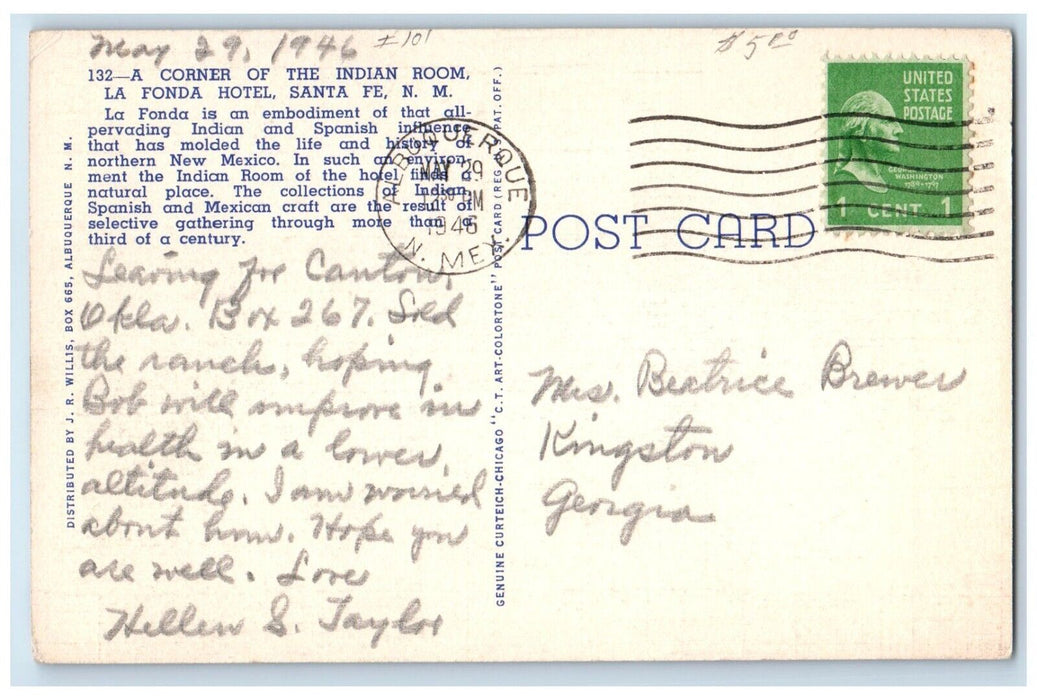 May 29, 1946
#101
$5.00
132—A CORNER OF THE INDIAN ROOM,
LA FONDA HOTEL, SANTA FE, N. M.
La Fonda is an embodiment of that all-
pervading Indian and Spanish influence
that has molded the life and history of
northern New Mexico. In such an environ-
ment the Indian Room of the hotel finds a
natural place. The collections of Indian,
Spanish and Mexican craft are the result of
selective gathering through more than a
third of a century.
Leaving for Canton,
Okla. Box 267. Sold
the ranch, hoping
Bob will improve in
health in a lower
altitude. I am worried
about him. Hope you
are well. Love
Hellen S. Taylor
DISTRIBUTED BY J. R. WILLIS, BOX 665, ALBUQUERQUE N. M.
GENUINE CURTEICH-CHICAGO "C.T. ART-COLORTONE" POST CARD (REG. U.S. PAT. OFF.)
ALBUQUERQUE
MAY 29
PM
1946
N. MEX.
POST CARD
UNITED
STATES
POSTAGE
WASHINGTON
1789-1797
1 CENT 1
Mrs. Beatrice Brewer
Kingston
Georgia